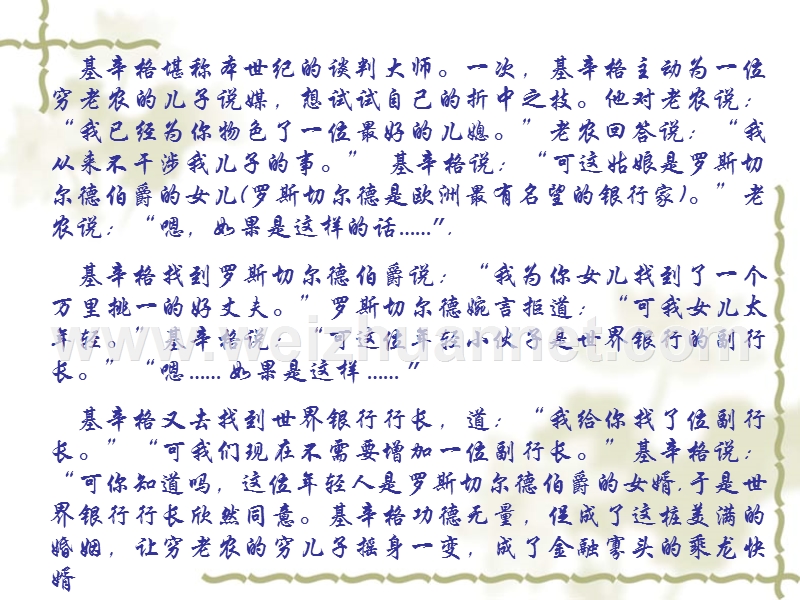 基辛格堪称本世纪的谈判大师。一次，基辛格主动为一位
穷老农的儿子说媒，想试试自己的折中之技。他对老农说：
“我已经为你物色了一位最好的儿媳。”老农回答说：“我
从来不干涉我儿子的事。” 基辛格说：“可这姑娘是罗斯切
尔德伯爵的女儿(罗斯切尔德是欧洲最有名望的银行家)。”老
农说：“嗯，如果是这样的话……”.
基辛格找到罗斯切尔德伯爵说：“我为你女儿找到了一个
万里挑一的好丈夫。”罗斯切尔德婉言拒道：“可我女儿太
年轻。”基辛格说：“可这位年轻小伙子是世界银行的副行
长。”“嗯……如果是这样……”
www.weizhuannet.com
基辛格又去找到世界银行行长，道：“我给你找了位副行
长。”“可我们现在不需要增加一位副行长。”基辛格说：
“可你知道吗，这位年轻人是罗斯切尔德伯爵的女婿.于是世
界银行行长欣然同意。基辛格功德无量，促成了这桩美满的
婚姻，让穷老农的穷儿子摇身一变，成了金融寡头的乘龙快
婿